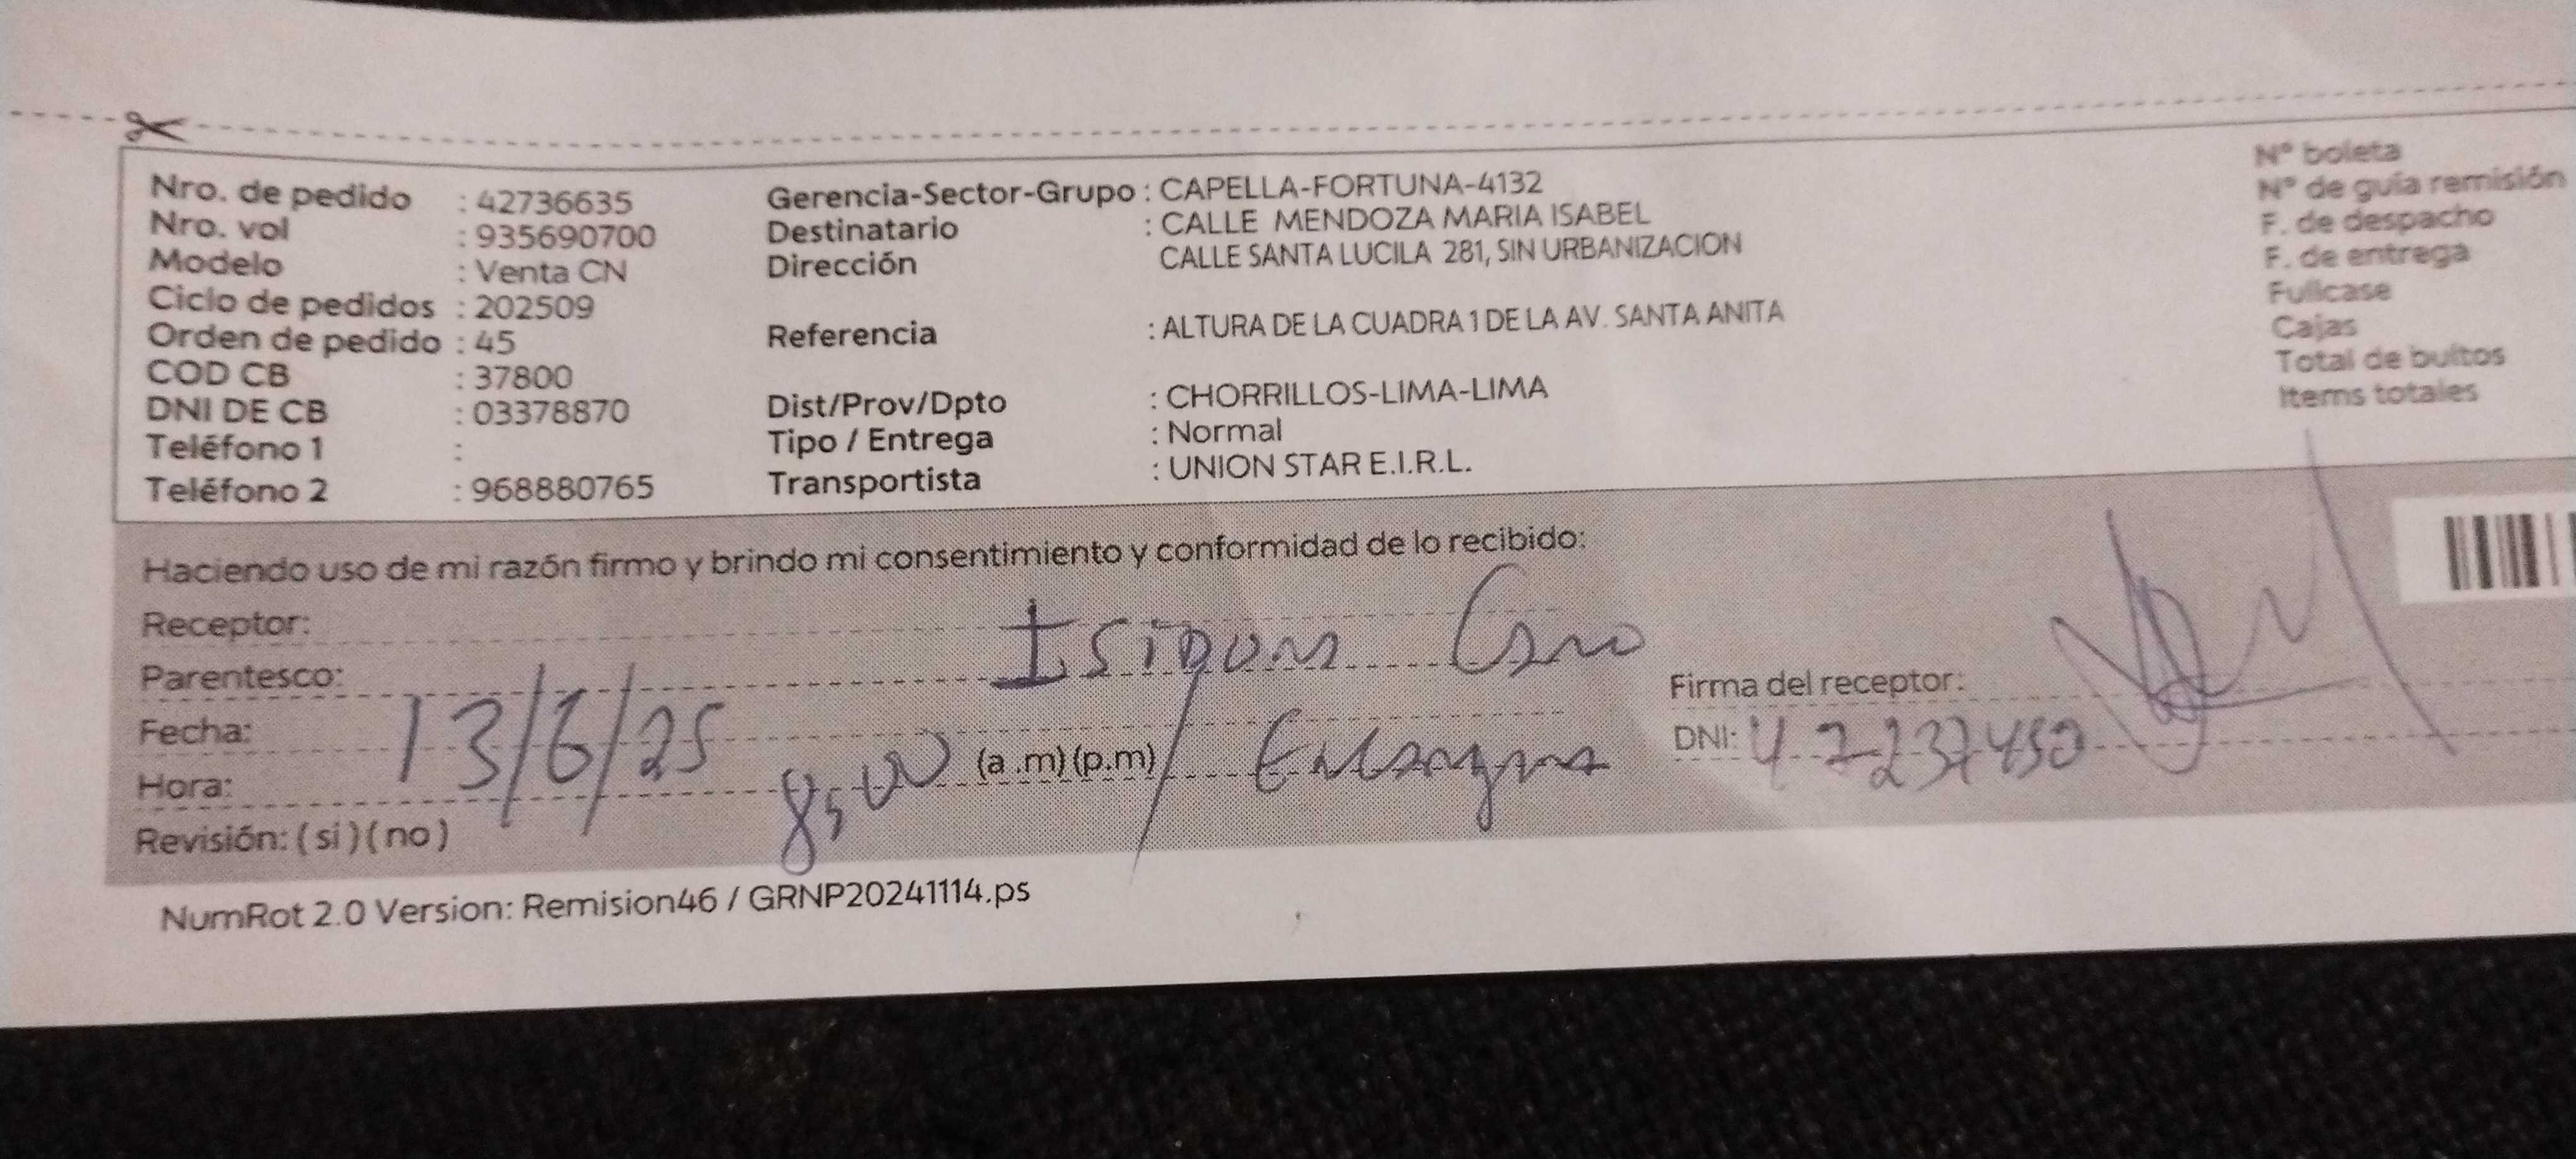 Nro. de pedido : 42736635
Nro. vol : 935690700
Modelo : Venta CN
Ciclo de pedidos : 202509
Orden de pedido : 45
COD CB : 37800
DNI DE CB : 03378870
Teléfono 1 :
Teléfono 2 : 968880765
Gerencia-Sector-Grupo : CAPELLA-FORTUNA-4132
Destinatario : CALLE MENDOZA MARIA ISABEL
Dirección CALLE SANTA LUCILA 281, SIN URBANIZACION
Referencia : ALTURA DE LA CUADRA 1 DE LA AV. SANTA ANITA
Dist/Prov/Dpto : CHORRILLOS-LIMA-LIMA
Tipo / Entrega : Normal
Transportista : UNION STAR E.I.R.L.
N° boleta
N° de guía remisión
F. de despacho
F. de entrega
Fullcase
Cajas
Total de bultos
Items totales
Haciendo uso de mi razón firmo y brindo mi consentimiento y conformidad de lo recibido:
Receptor:
Parentesco:
Fecha: 13/6/25
Hora: (a .m) (p.m)
Revisión: ( si ) ( no )
Firma del receptor:
DNI: 47237450
NumRot 2.0 Version: Remision46 / GRNP20241114.ps